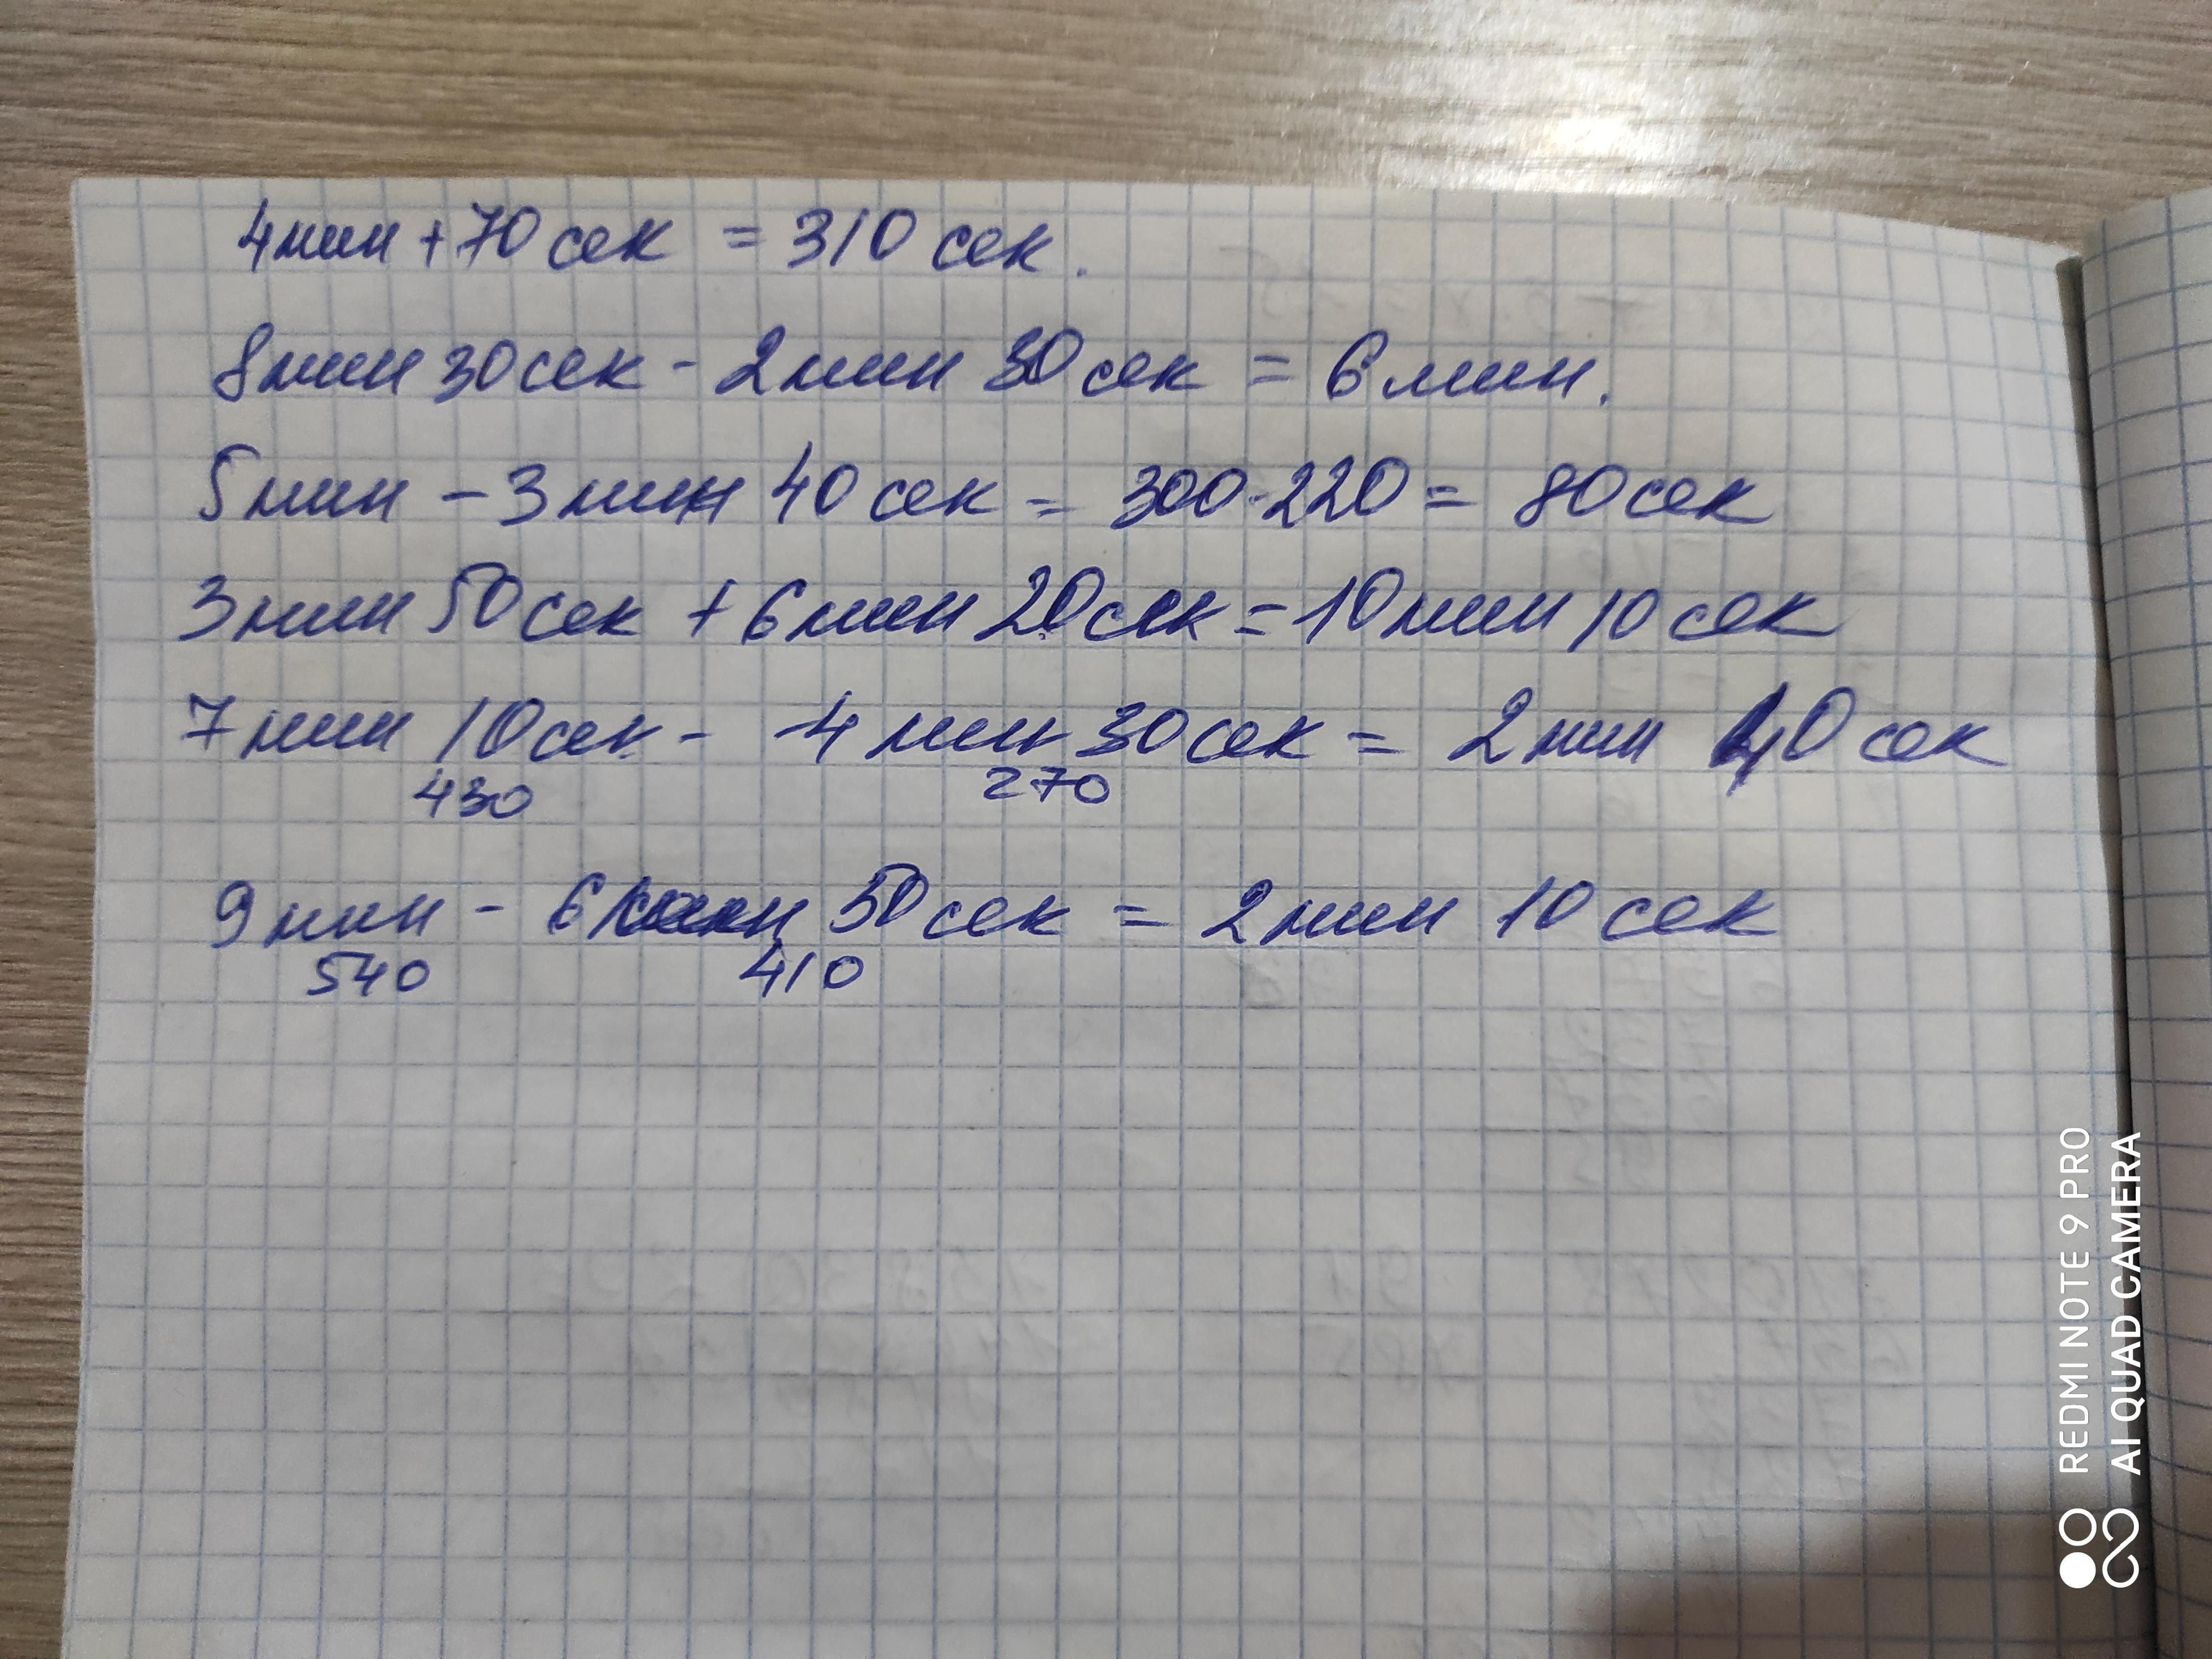 4мин + 70 сек = 310 сек.
8мин 30 сек - 2 мин 30 сек = 6 мин.
5мин - 3 мин 40 сек = 300 - 220 = 80 сек
3мин 50 сек + 6 мин 20 сек = 10 мин 10 сек
7 мин 10 сек - 4 мин 30 сек = 2 мин 40 сек
430 270
9 мин - 6 мин 50 сек = 2 мин 10 сек
540 410
REDMI NOTE 9 PRO
AI QUAD CAMERA